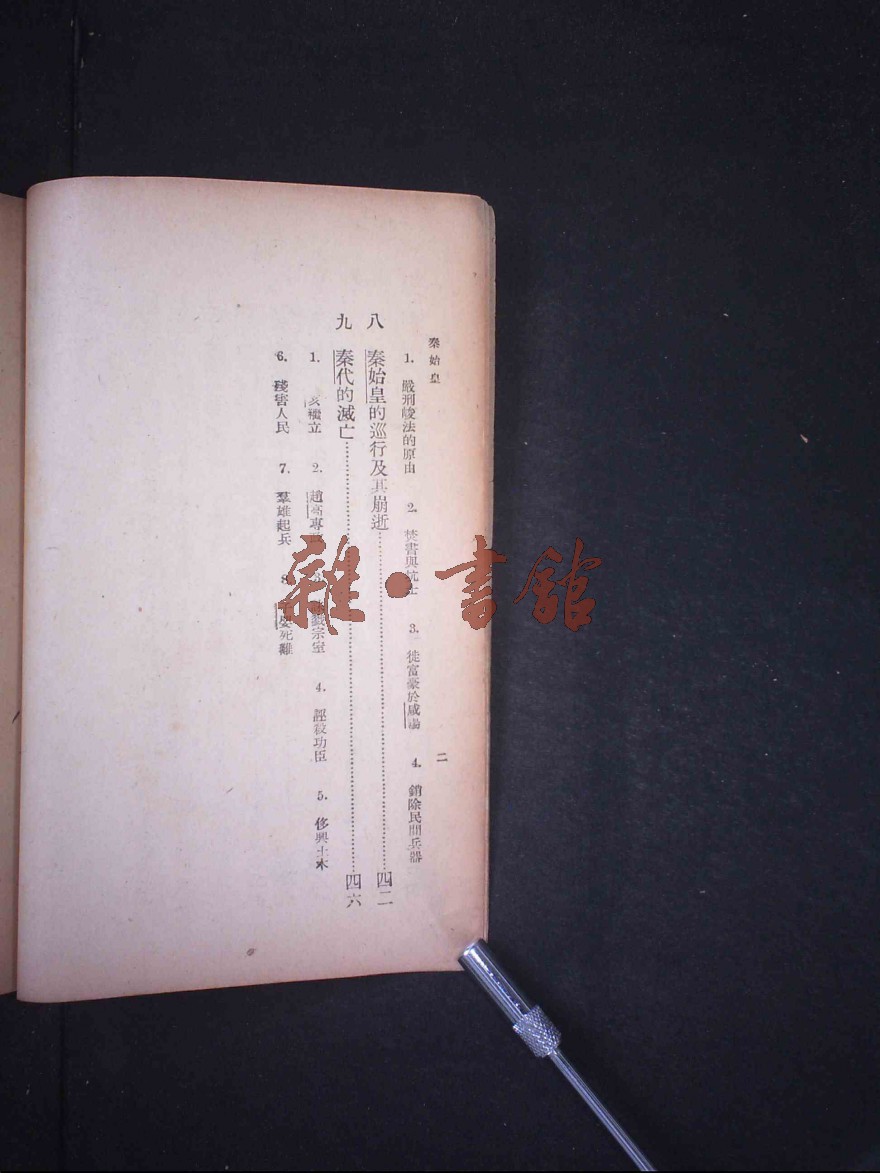 秦始皇
二
1. 嚴刑峻法的原由 2. 焚書與坑士 3. 徙富豪於咸陽 4. 銷除民間兵器
八 秦始皇的巡行及其崩逝……四二
九 秦代的滅亡……四六
1. 亥襲立 2. 趙高專 宗室 4. 誣殺功臣 5. 侈興土木
6. 殘害人民 7. 羣雄起兵 8. 子嬰死難
雜·書館